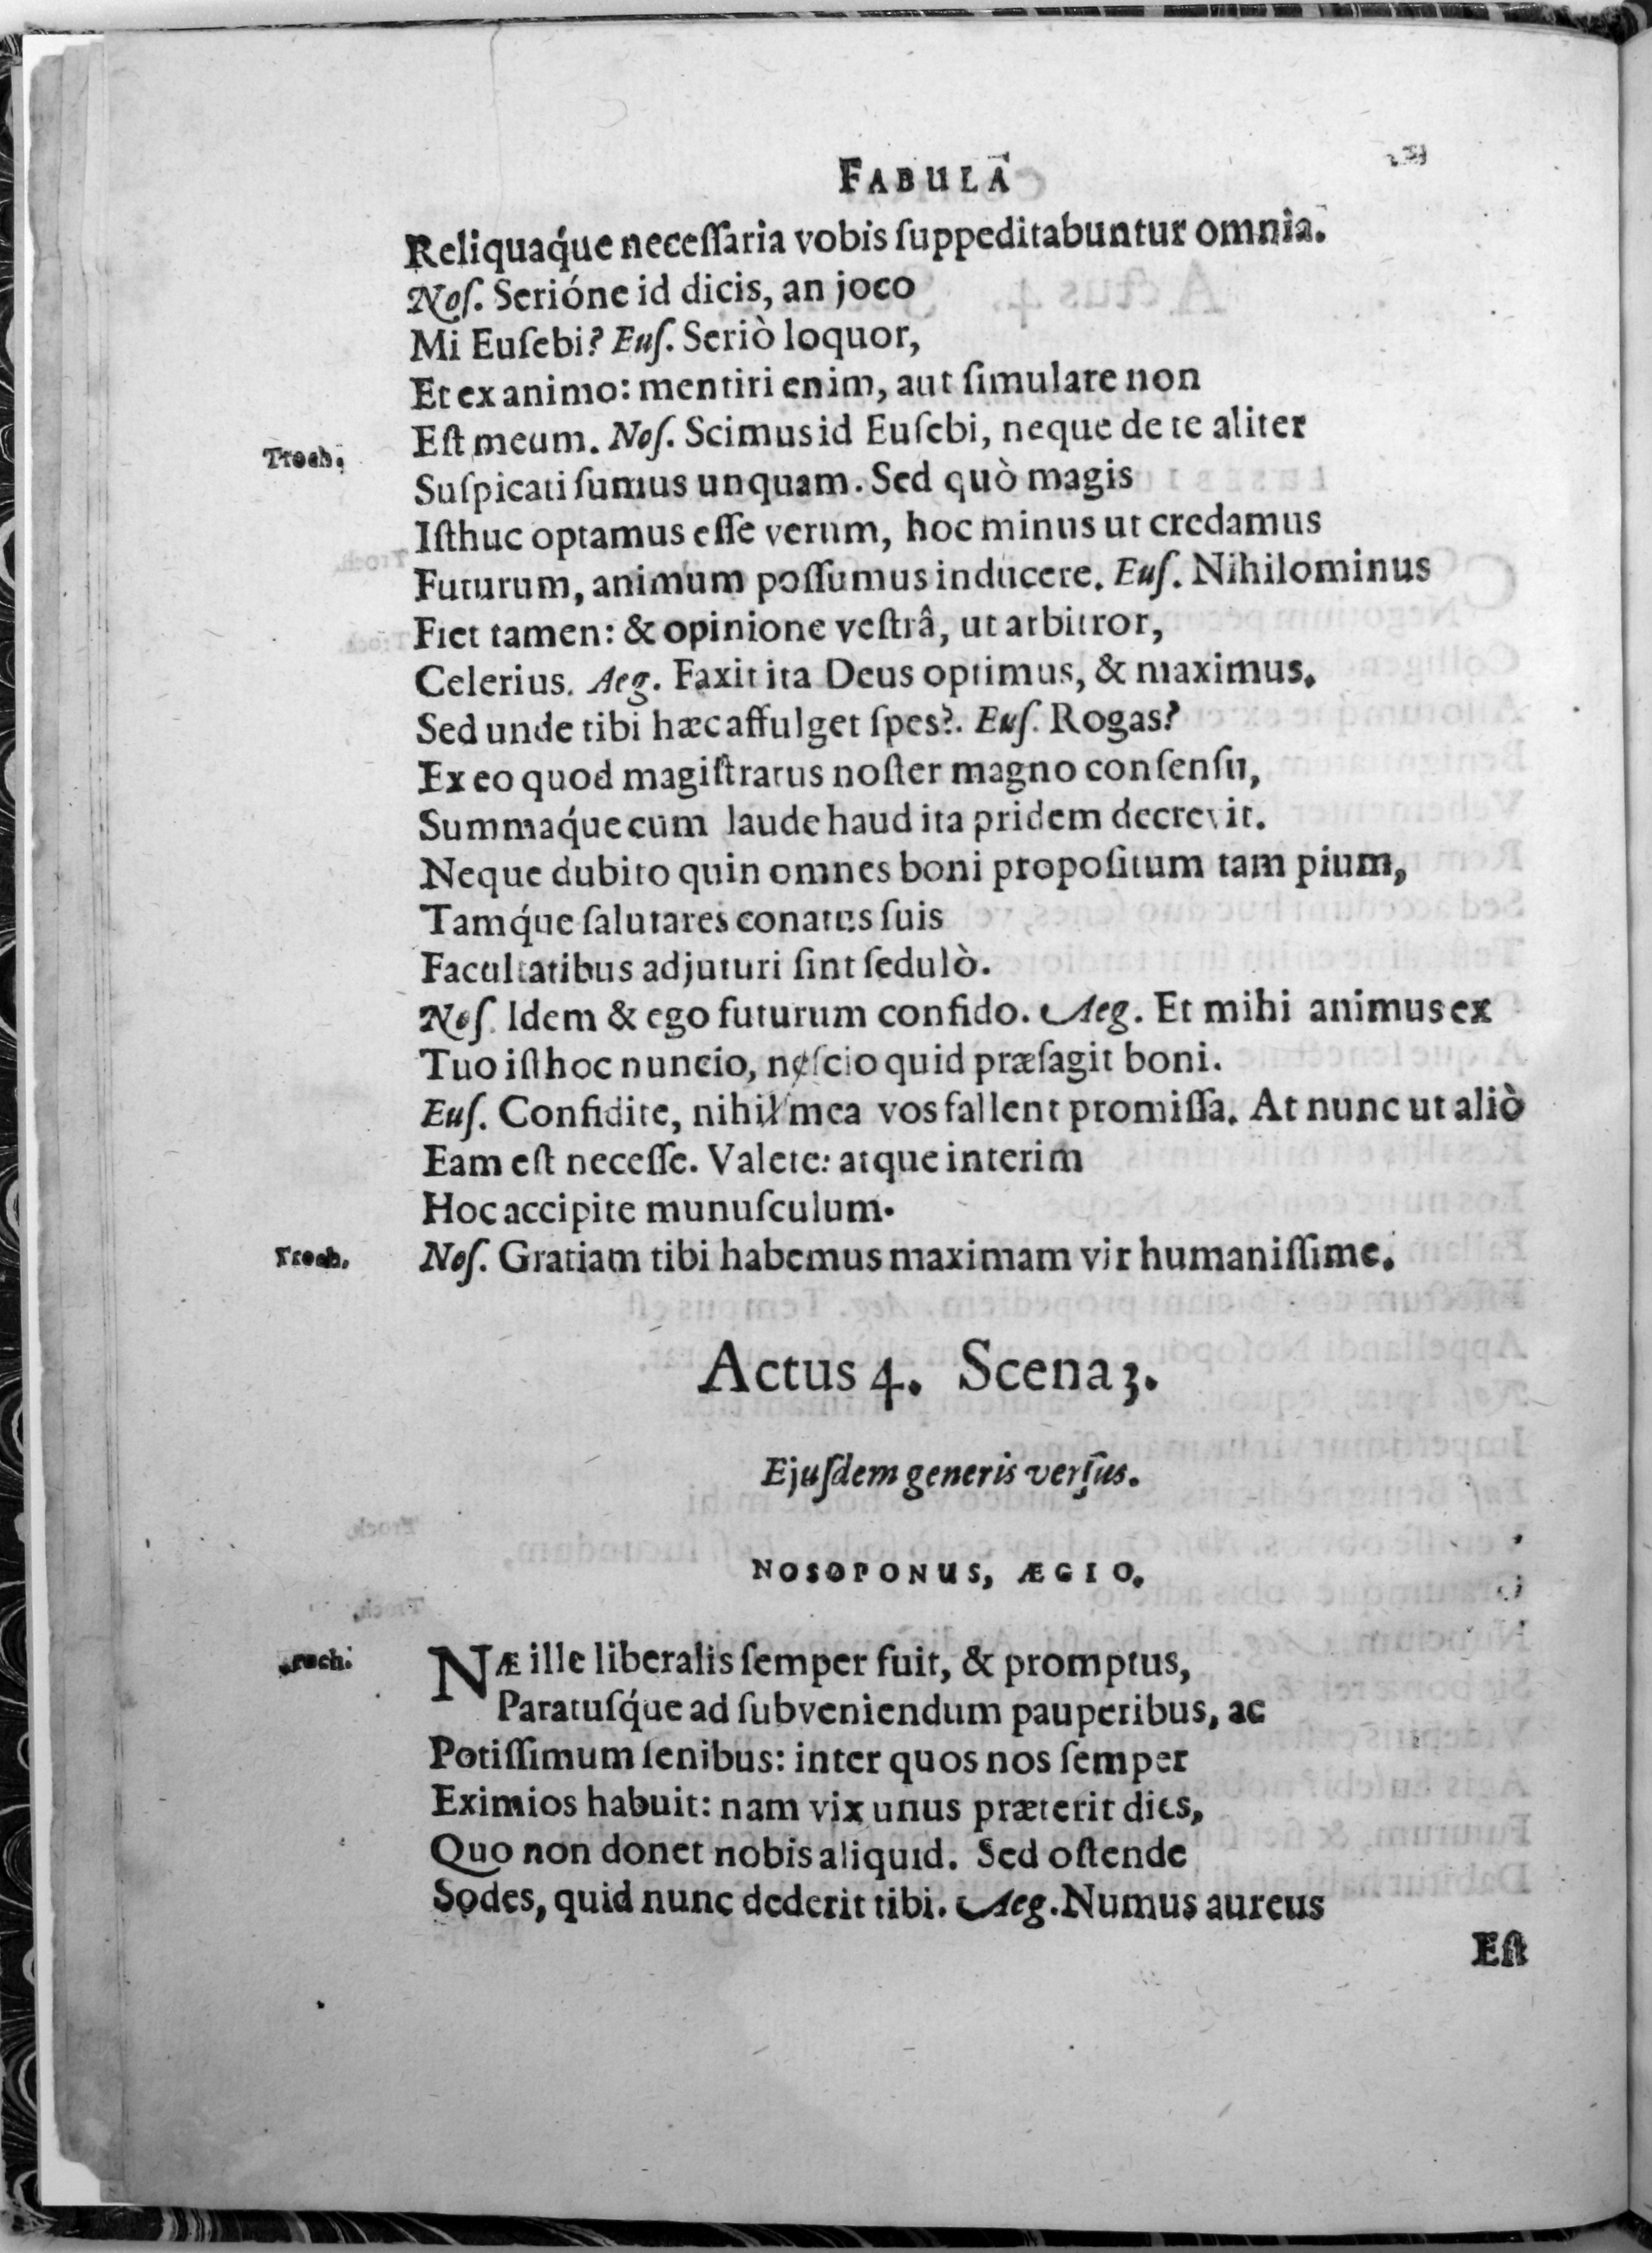 FABULA
Reliquaq́ue neceſſaria vobis ſuppeditabuntur omnia.
Noſ. Serióne id dicis, an joco
Mi Euſebi? Euſ. Seriò loquor,
Et ex animo: mentiri enim, aut ſimulare non
Troch. Eſt meum. Noſ. Scimus id Euſebi, neque de te aliter
Suſpicati ſumus unquam. Sed quò magis
Iſthuc optamus eſſe verum, hoc minus ut credamus
Futurum, animum poſſumus inducere. Euſ. Nihilominus
Fiet tamen: & opinione veſtrâ, ut arbitror,
Celerius. Aeg. Faxit ita Deus optimus, & maximus.
Sed unde tibi hæc affulget ſpes?. Euſ. Rogas?
Ex eo quod magiſtratus noſter magno conſenſu,
Summaq́ue cum laude haud ita pridem decrevit.
Neque dubito quin omnes boni propoſitum tam pium,
Tamq́ue ſalutares conatus ſuis
Facultatibus adjuturi ſint ſedulò.
Noſ. Idem & ego futurum confido. Aeg. Et mihi animus ex
Tuo iſthoc nuncio, neſcio quid præſagit boni.
Euſ. Confidite, nihil mea vos fallent promiſſa. At nunc ut aliò
Eam eſt neceſſe. Valete: atque interim
Hoc accipite munuſculum.
Troch. Noſ. Gratiam tibi habemus maximam vir humaniſſime.
Actus 4. Scena 3.
Ejuſdem generis verſus.
NOSOPONUS, ÆGIO.
Troch. NÆ ille liberalis ſemper fuit, & promptus,
Paratuſq́ue ad ſubveniendum pauperibus, ac
Potiſſimum ſenibus: inter quos nos ſemper
Eximios habuit: nam vix unus præterit dies,
Quo non donet nobis aliquid. Sed oſtende
Sodes, quid nunc dederit tibi. Aeg. Numus aureus
Eſt